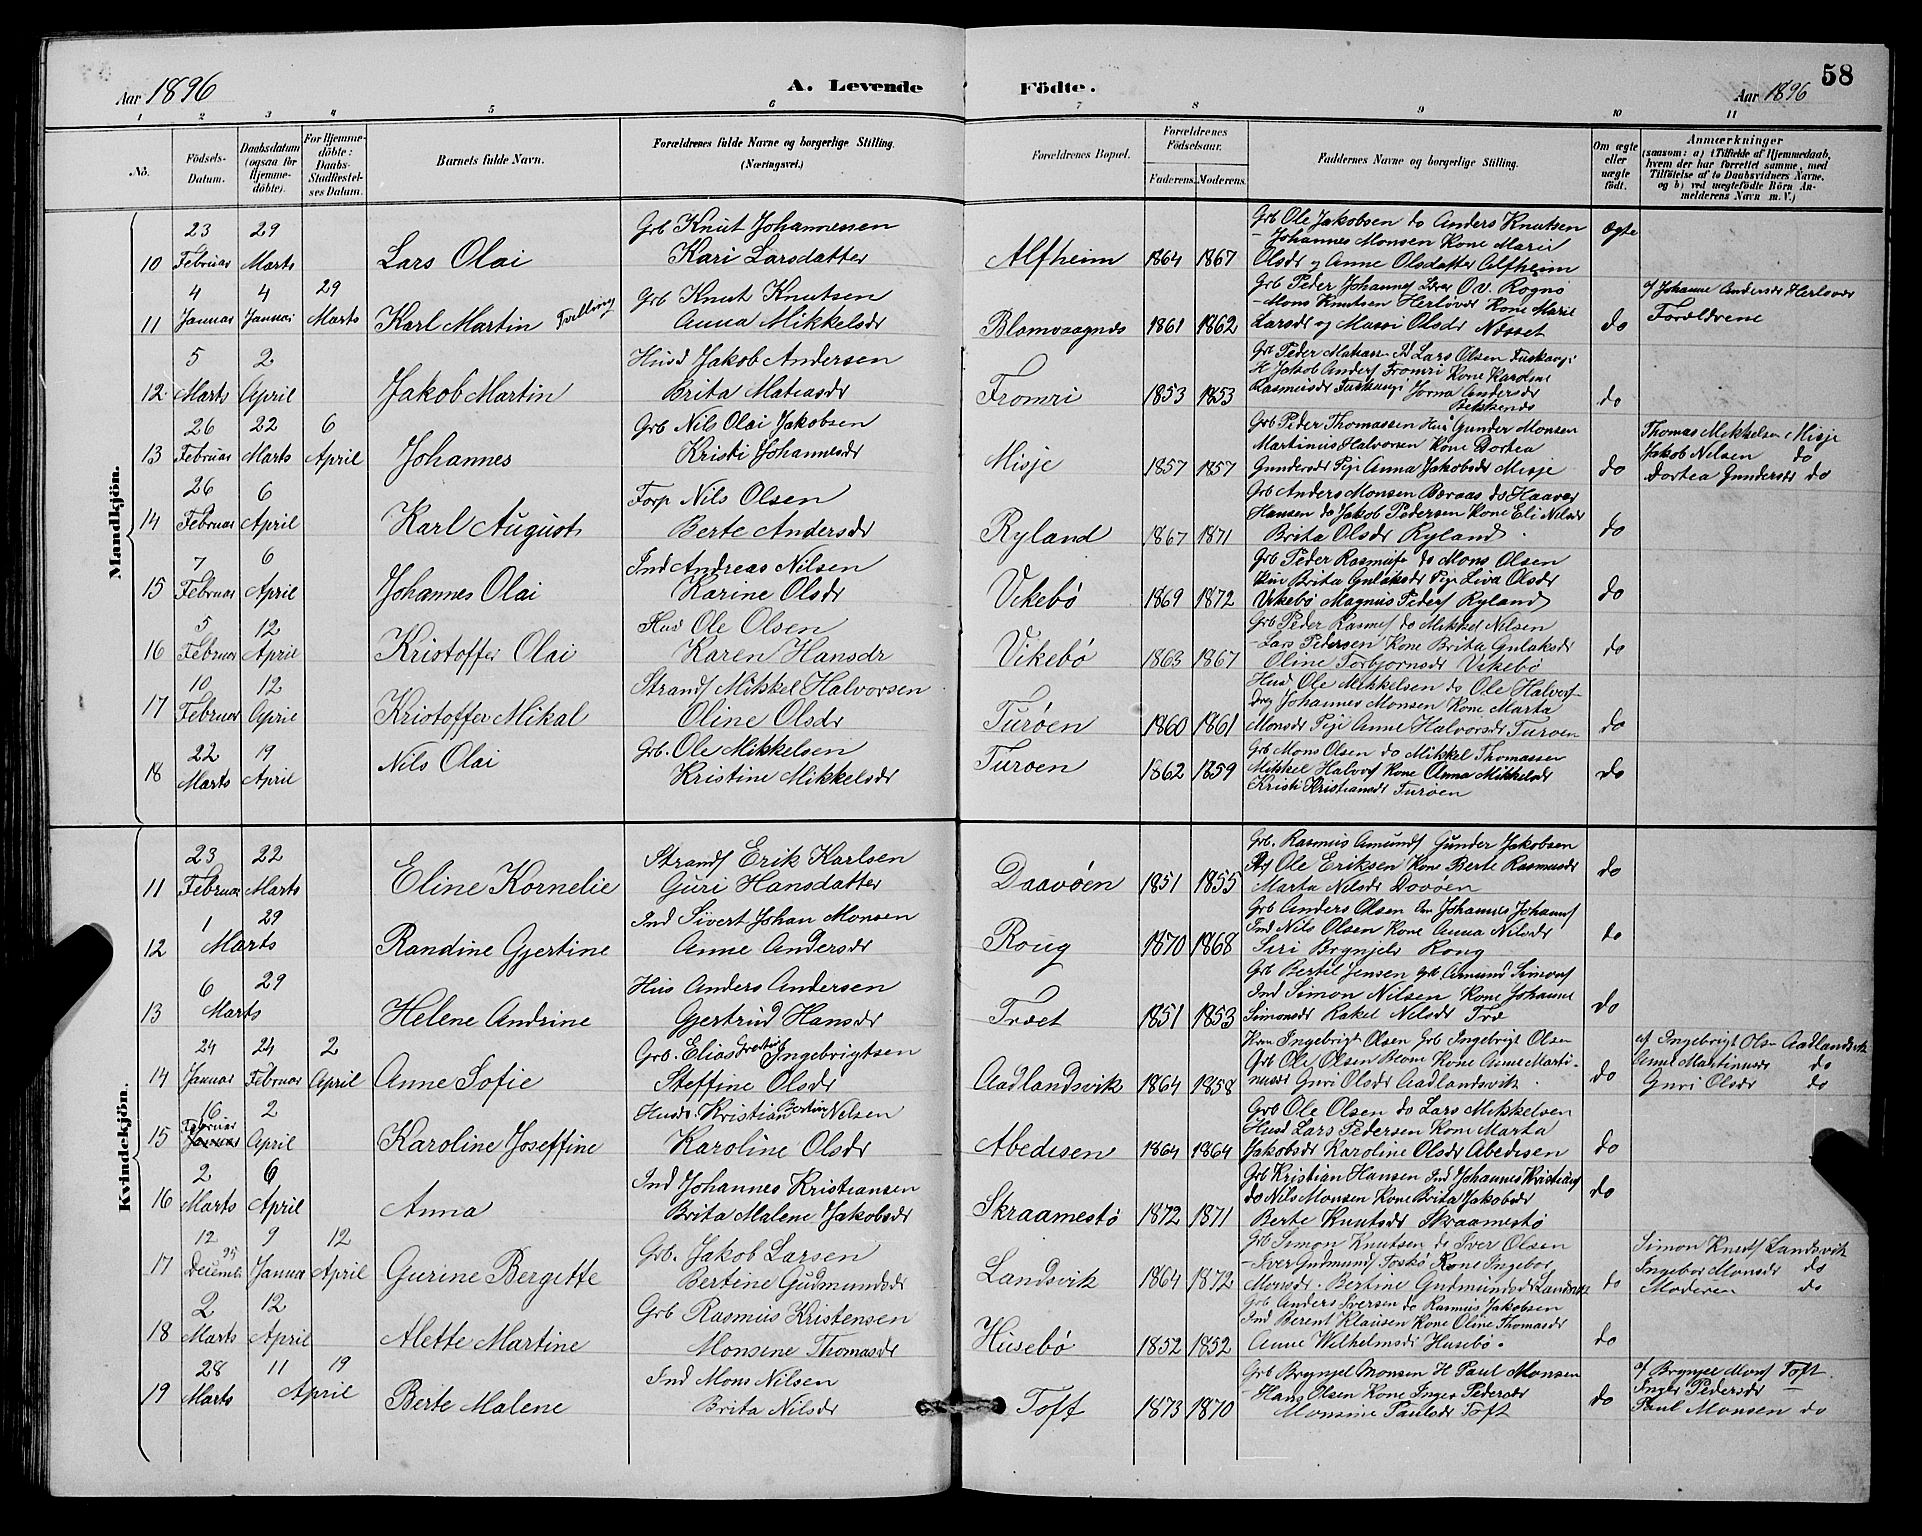 Aar 1896 A. Levende Födte. Aar 1896 58
1 2 3 4 5 6 7 8 9 10 11
No. Födsels-Datum. Daabsdatum (ogsaa for Hjemmedöbte). For Hjemmedöbte: Daabs-Stadfæstelses Datum. Barnets fulde Navn. Forældrenes fulde Navne og borgerlige Stilling. (Næringsvei.) Forældrenes Bopæl. Forældrenes Födselsaar. Faderens. Moderens. Faddernes Navne og borgerlige Stilling. Om ægte eller uægte födt. Anmærkninger (saasom: a) i Tilfælde af Hjemmedaab, hvem der har forrettet samme, med Tilföielse af to Daabsvidners Navne, og b) ved uægtefödte Börn Anmelderens Navn m. V.)
Mandkjön.
23 29 Grb Knut Johannessen Grb Ole Jakobsen do Anders Knutsen
- Johannes Monsen Kone Marie Ægte
10 Februar Marts Lars Olai Kari Larsdatter Alfheim 1864 1867 Olsdr og Anne Olsdatter Alfheim
4 4 29 Grb Knut Knutsen Grb Peder Johannes O.v. Rognø
- Mons Knutsen Herløver Kone Marie af Johanne Andersdr Herløver
11 Januar Januar Marts Karl Martin Tvilling Anna Mikkelsdr Blomvaagnes 1861 1862 Larsdr og Massi Olsdr Næsset do Forældrene
5 2 Husd Jakob Andersen Grb Peder Lars Olsen
H Jakob Anders Fromri Kone Karoline
12 Marts April Jakob Martin Brita Matiasdr Fromri 1853 1853 Rasmusdr Andersdr do
26 22 6 Grb Nils Olai Jakobsen Grb Peder Thomassen Hus Gunder Monsen Thomas Mikkelsen Misje
Martinius Halvorsen Kone Dortea Jakob Nilsen do
13 Februar Marts April Johannes Kristi Johannesdr Misje 1857 1857 Gundersdr Pige Anna Jakobsdr Misje do Dortea Gundersdr do
26 6 Torp Nils Olsen Grb Anders Monsen do Haaver
Hansen do Jakob Pedersen Kone Eli Nilsdr
14 Februar April Karl August Berte Andersdr Ryland 1867 1871 Brita Olsdr Ryland do
7 6 Ind Andreas Nilsen Grb Peder Rasmuss do Mons Olsen
Brita Gulaksdr Pige Liva Olsdr
15 Februar April Johannes Olai Karine Olsdr Vikebø 1869 1872 Vikebø Magnus Peders Ryland do
5 12 Hus Ole Olsen Grb Peder Rasmus do Mikkel Nilsen
- Lars Pedersen Kone Brita Gulaksdr
16 Februar April Kristoffer Olai Karen Hansdr Vikebø 1863 1867 Oline Torbjornsdr Vikebø do
10 12 Strands Mikkel Halvorsen Husd Ole Mikkelsen do Ole Halvors
Johannes Monsen Kone Marta
17 Februar April Kristoffer Mikal Oline Olsdr Turøen 1860 1861 Monsdr Pige Anne Halvorsdr Turøen do
22 19 Grb. Ole Mikkelsen Grb Mons Olsen do Mikkel Thomassen
Nils Olai Turøen Mikkel Halvors Kone Anna Mikkelsdr
18 Marts April Kristine Mikkelsdr 1862 1859 Kristi Kristiansdr Turøen do
Kvindekjön.
23 22 Strands Erik Karlsen Grb. Rasmus Amunds Gunder Jakobsen
Ole Eriksen Kone Berte Rasmusdr do
11 Februar Marts Eline Kornelie Guri Hansdatter Daavøen 1851 1855 Marta Nilsdr Dovøen
1 29 Ind Sivert Johan Monsen Grb Anders Olsen Johannes Johanns
Ind Nils Olsen Kone Anna Nilsdr do
12 Marts Randine Gjertine Anne Andersdr Roug 1870 1868 Siri Brynjels Rong
6 29 Hus Anders Andersen Grb Bertil Jensen Grb Amund Simons
Ind Simon Nilsen Kone Johanne
13 Marts Helene Andrine Gjertrud Hansdr Træet 1851 1853 Simonsdr Rakel Nilsdr Træ do
24 24 2 Grb. Elias Ingebrigtsen Ingebrigt Olsen Grb Ingebrigt Olsen af Ingebrigt Olsn Aadlandsvik
Grb Ole Olsen Blom Kone Anne Marti- Anne Martinusdr do
14 Januar Februar April Anne Sofie Steffine Olsdr Aadlandsvik 1864 1858 nusdr Guri Olsdr Aadlandsvik do Guri Olsdr do
16 2 Husdr. Kristian Bertin Nilsen Grb Ole Olsen do Lars Mikkelsen
Februar Husd Lars Pedersen Kone Marta
15 Januar April Karoline Joseffine Karoline Olsdr Abedisen 1864 1864 Jakobsdr Karoline Olsdr Abedisen do
2 6 Ind Johannes Kristiansen Grb Kristian Hansen Ind Johannes Kristians
do Nils Monsen Kone Brita Jakobsdr do
16 Marts April Anna Brita Malene Jakobsdr Skraamestø 1872 1871 Berte Knutsdr Skraamestø
12 9 12 Grb. Jakob Larsen Grb Simon Knutsen do Iver Olsen Simon Knuts Landsvik
95 - Iver Gudmunds Toskø Kone Ingebor Ingebor Monsdr do
17 Decembr Januar April Gurine Bergitte Bertine Gudmundsdr Landsvik 1864 1872 Monsdr. Bertine Gudmundsdr Landsvik do Moderen do
2 12 Grb Rasmus Kristensen Grb Anders Iversen do Rasmus Jakobsen
Ind Berent Klausen Kone Oline Thomasdr
18 Marts April Alette Martine Monsine Thomasdr Husebø 1852 1852 Anne Wilhelmsdr Husebø. do
28 11 19 Ind Mons Nilsen Grb Brynjel Monsen H Paul Monsen af Brynjel Mons Toft.
- Hans Olsen Kone Inger Pedersdr Inger Pedersdr —
19 Marts April Berte Malene Brita Nilsdr Toft 1873 1870 Monsine Paulsdr Toft do Paul Monsen do